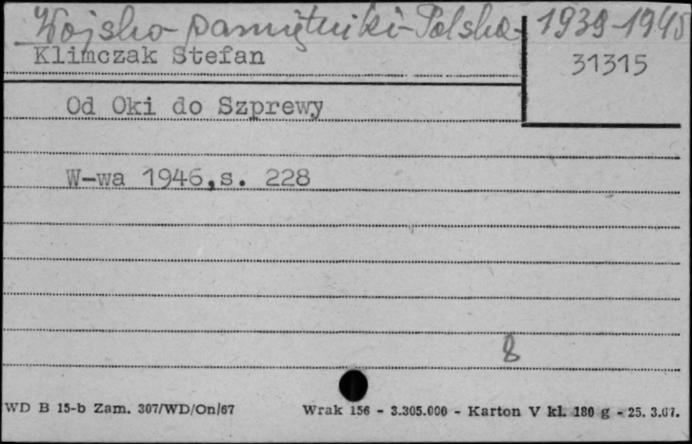 Wojsko-pamiętniki-Polska-1939-1945
Klimczak Stefan
31315
Od Oki do Szprewy
W-wa 1946,s. 228
8
WD B 15-b Zam. 307/WD/On/67 Wrak 156 - 3.305.000 - Karton V kl. 180 g - 25. 3.67.